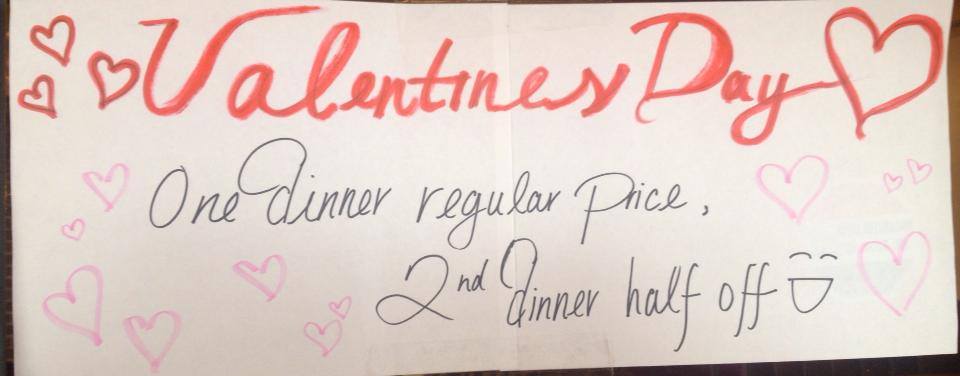 Valentines Day
One dinner regular price,
2nd dinner half off